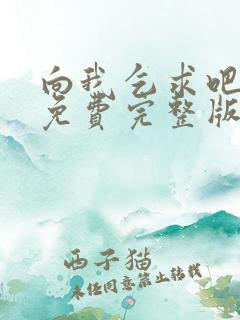 向我乞求吧
免费完整版
西子猫
未经同意禁止转载